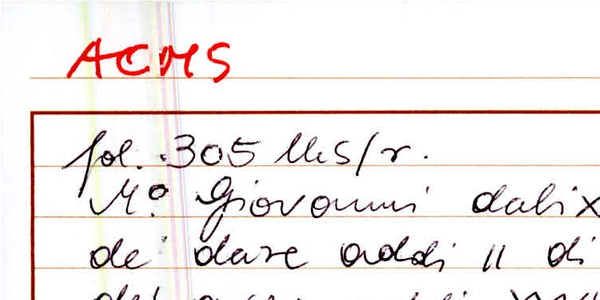 ACMS
fol. 305 MS/r.
M.º Giovanni dalix
de' dare addi 11 di